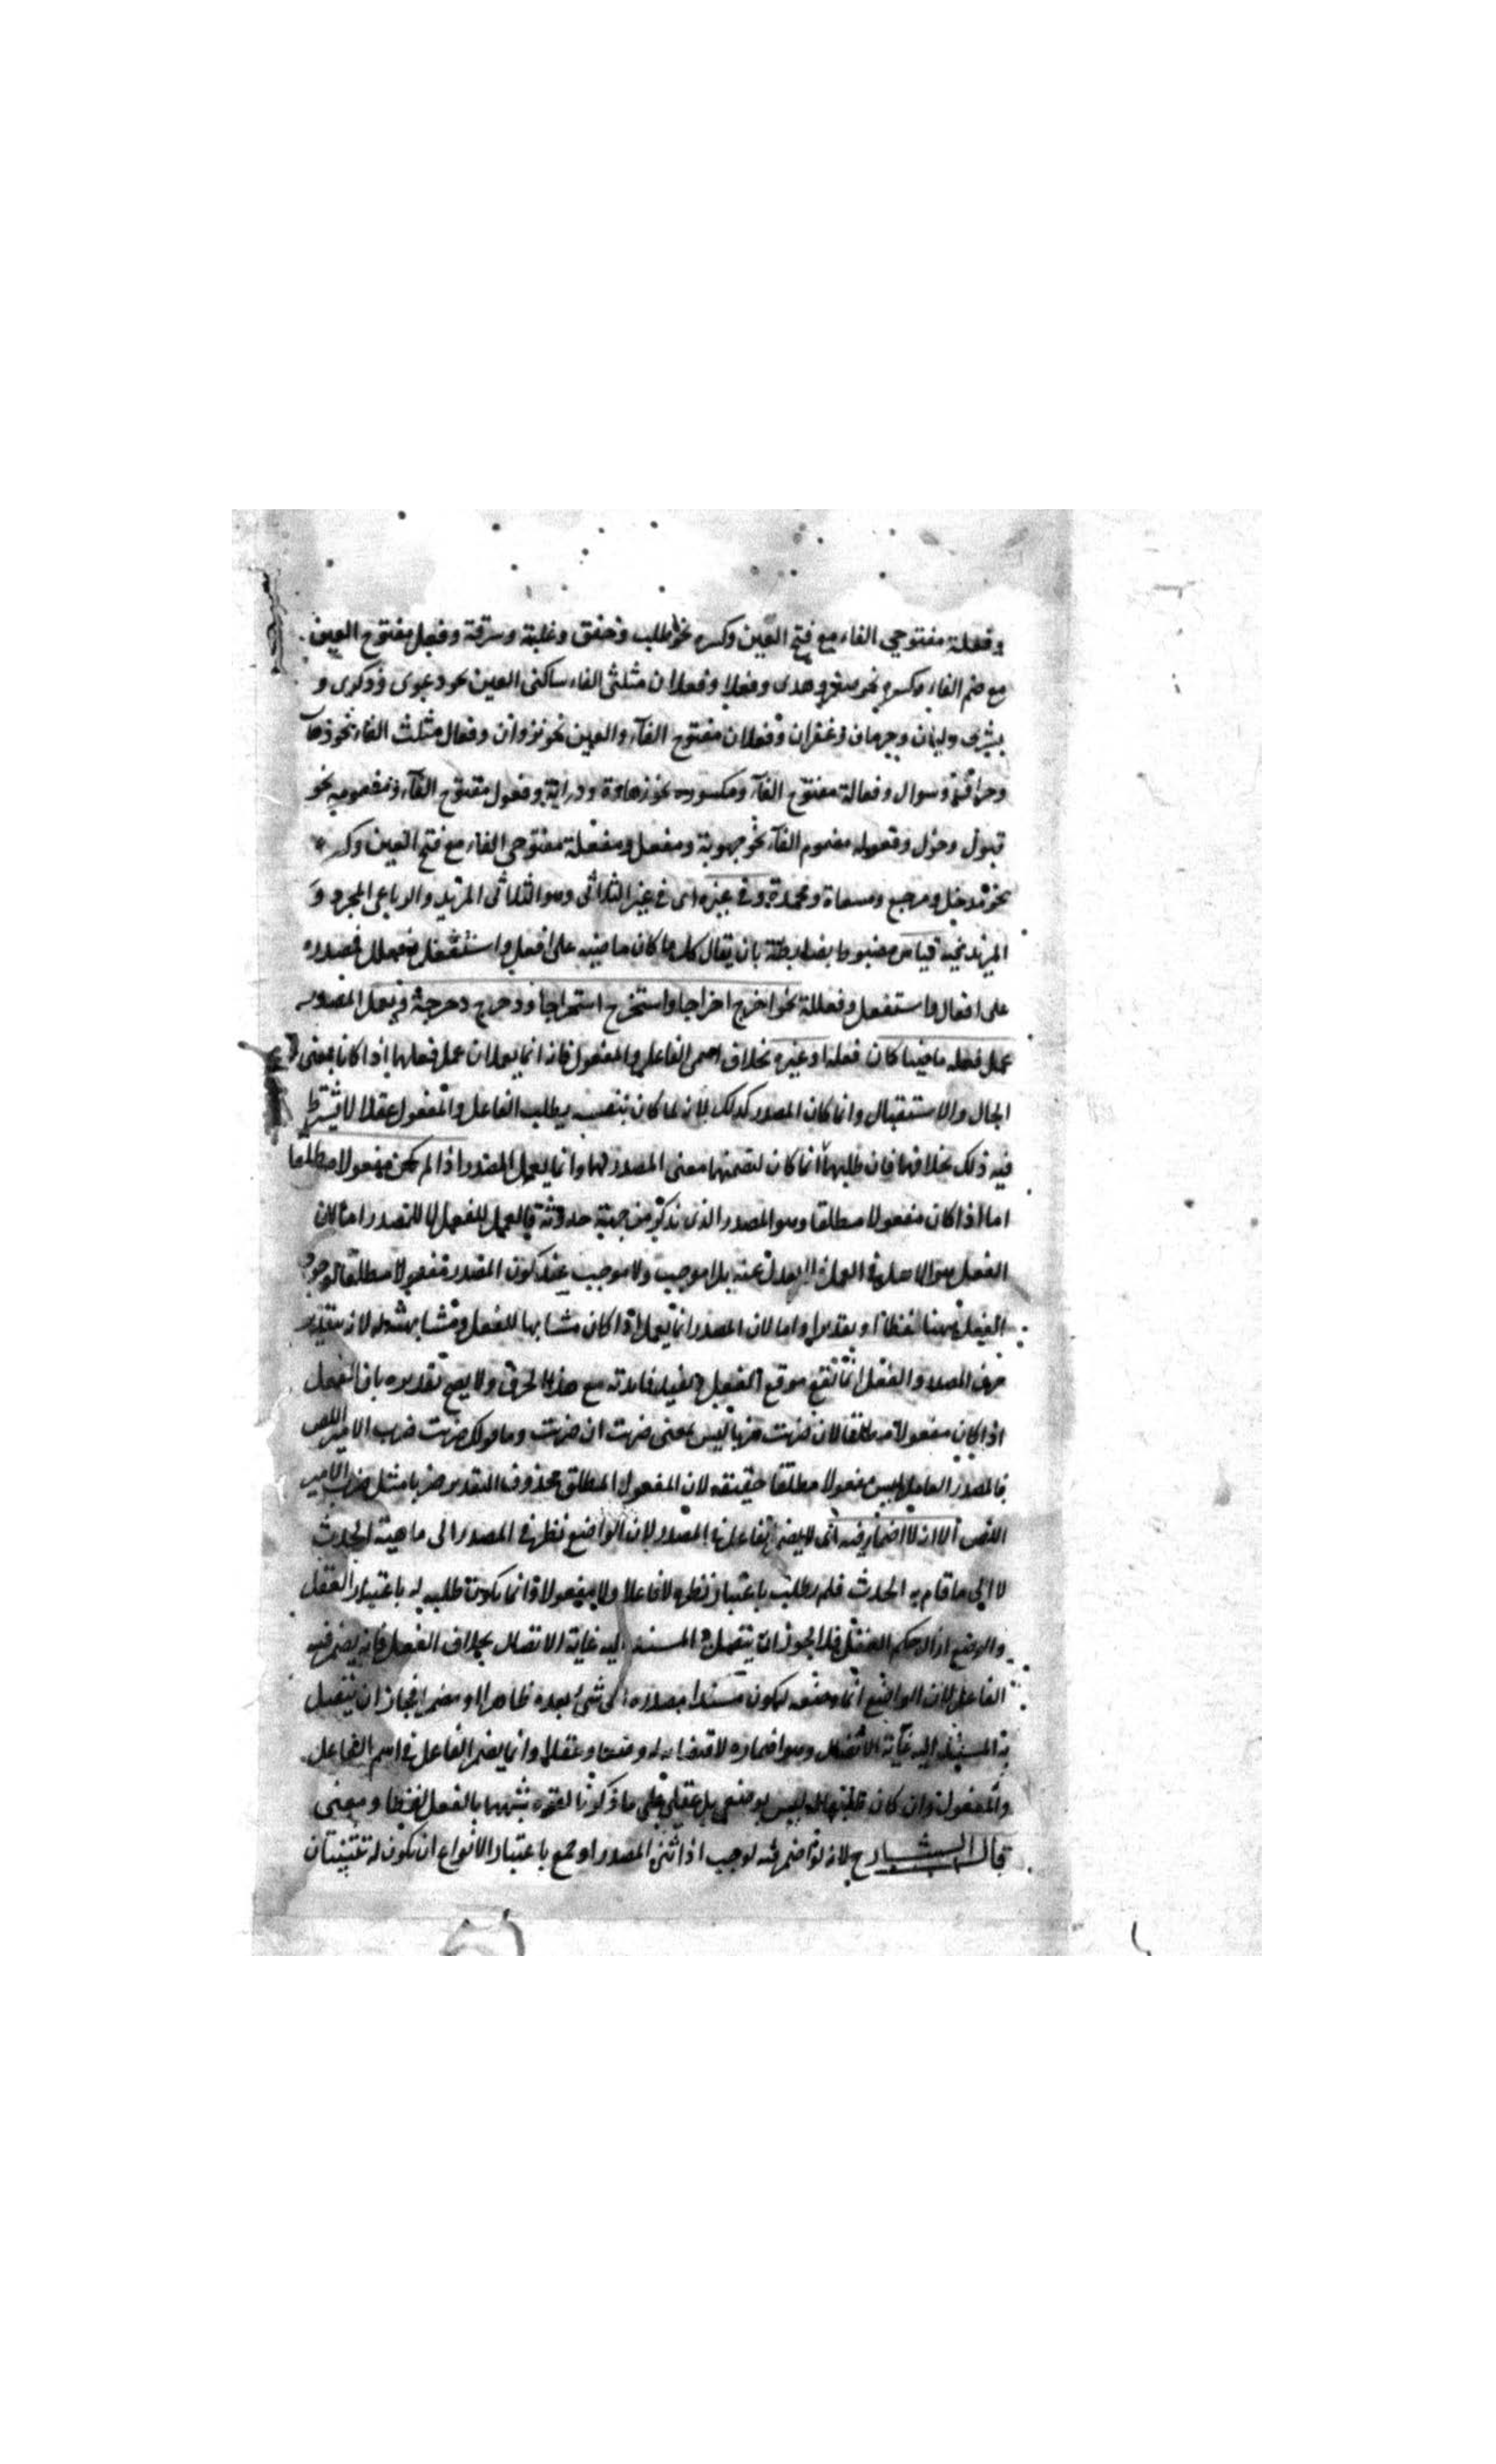 وفعلة مفتوحي الفاء مع فتح العين وكسره نحو طلب وخنق وغلبة وسرقة وفعل مفتوح العين
مع ضم الفاء وكسره نحو صغر وهدى وفعلا وفعلان مثلثى الفاء ساكنى العين نحو دعوى وذكرى و
بشرى وليان وحرمان وغفران وفعلان مفتوح الفآء والعين نحو نزوان وفعال مثلث الفاء نحو ذهاب
وصراف وسوال وفعالة مفتوح الفآء ومكسوره نحو زهادة ودراية وفعول مفتوح الفآء ومضمومه نحو
قبول ودخول وفعوله مضموم الفآء نحو صهوبة ومفعل ومفعلة مفتوحى الفاء مع فتح العين وكسره
نحو مدخل ومرجع ومسعاة ومحمدة وفى غيره اى فى غير الثلاثى وهو الثلاثى المزيد والرباعى المجرد و
المزيد فيه قياس مضبوط بضابطة بان يقال كل ما كان ماضيه على افعل واستفعل وفعلل فمصدره
على افعال واستفعل وفعللة نحو اخرج اخراجا واستخرج استخراجا ودحرج دحرجة ويعمل المصدر
عمل فعله ماضيا كان فعله او غيره بخلاف اسمى الفاعل والمفعول فانه انما يعملان عمل فعلهما اذا كانا بمعنى
الحال والاستقبال وانما كان المصدر كذلك لانه لما كان بنفسه يطلب الفاعل والمفعول عقلا لا يشترط
فيه ذلك بخلافهما فان طلبهما انما كان لتضمنهما معنى المصدر لهما وانما يعمل المصدر اذا لم يكن مفعولا مطلقا
اما اذا كان مفعولا مطلقا وهو المصدر الذى يذكر من جهة حدوثه فالعمل للفعل لا للمصدر اما لان
الفعل هو الاصل فى العمل لا يعدل عنه بلا موجب ولا موجب عند كون المصدر مفعولا مطلقا لوجود
الفعل ههنا لفظا او تقديرا واما لان المصدر انما يعمل اذا كان مشابها للفعل ومشابهته له لانه بتقدير
حرف المصدر والفعل انما تقع موقع الفعل ويفيد فائدته مع هذا الحرف ولا يصح تقديره بان الفعل
اذا كان مفعولا مطلقا لان ضربت ضربا ليس بمعنى ضربت ان ضربت وما قولك ضربت ضرب الامير اللص
فالمصدر العامل ليس مفعولا مطلقا حقيقه لان المفعول المطلق محذوف التقدير ضربا مثل ضرب الامير
اللص الا انه لا اضمار فيه اى لا يضمر الفاعل فى المصدر لان الواضع نظر فى المصدر الى ماهية الحدث
لا الى ما قام به الحدث فلم يطلب باعتبار نظره لا فاعلا ولا مفعولا وانما يكون طلبه له باعتبار العقل
والوضع ازال حكم العقل فلا يجوز ان يتصل المسند اليه غاية الاتصال بخلاف الفعل فانه يضمر فيه
الفاعل لان الواضع انما وضعه ليكون مسندا مصدره الى شئ بعده ظاهرا او مضمرا فجاز ان يتصل
به المسند اليه غآية الاتصال وهو اضماره لاقتضائه له وضعا وعقلا وانما يضمر الفاعل فى اسم الفاعل
والمفعول وان كان طلبهما له ليس بوضعى بل عقلى على ما ذكرنا لقوة شبههما بالفعل لفظا ومعنى
قال الشارح لانه لو اضمر فيه لوجب اذا ثنى المصدر او جمع باعتبار الانواع ان يكون له تثنيتان